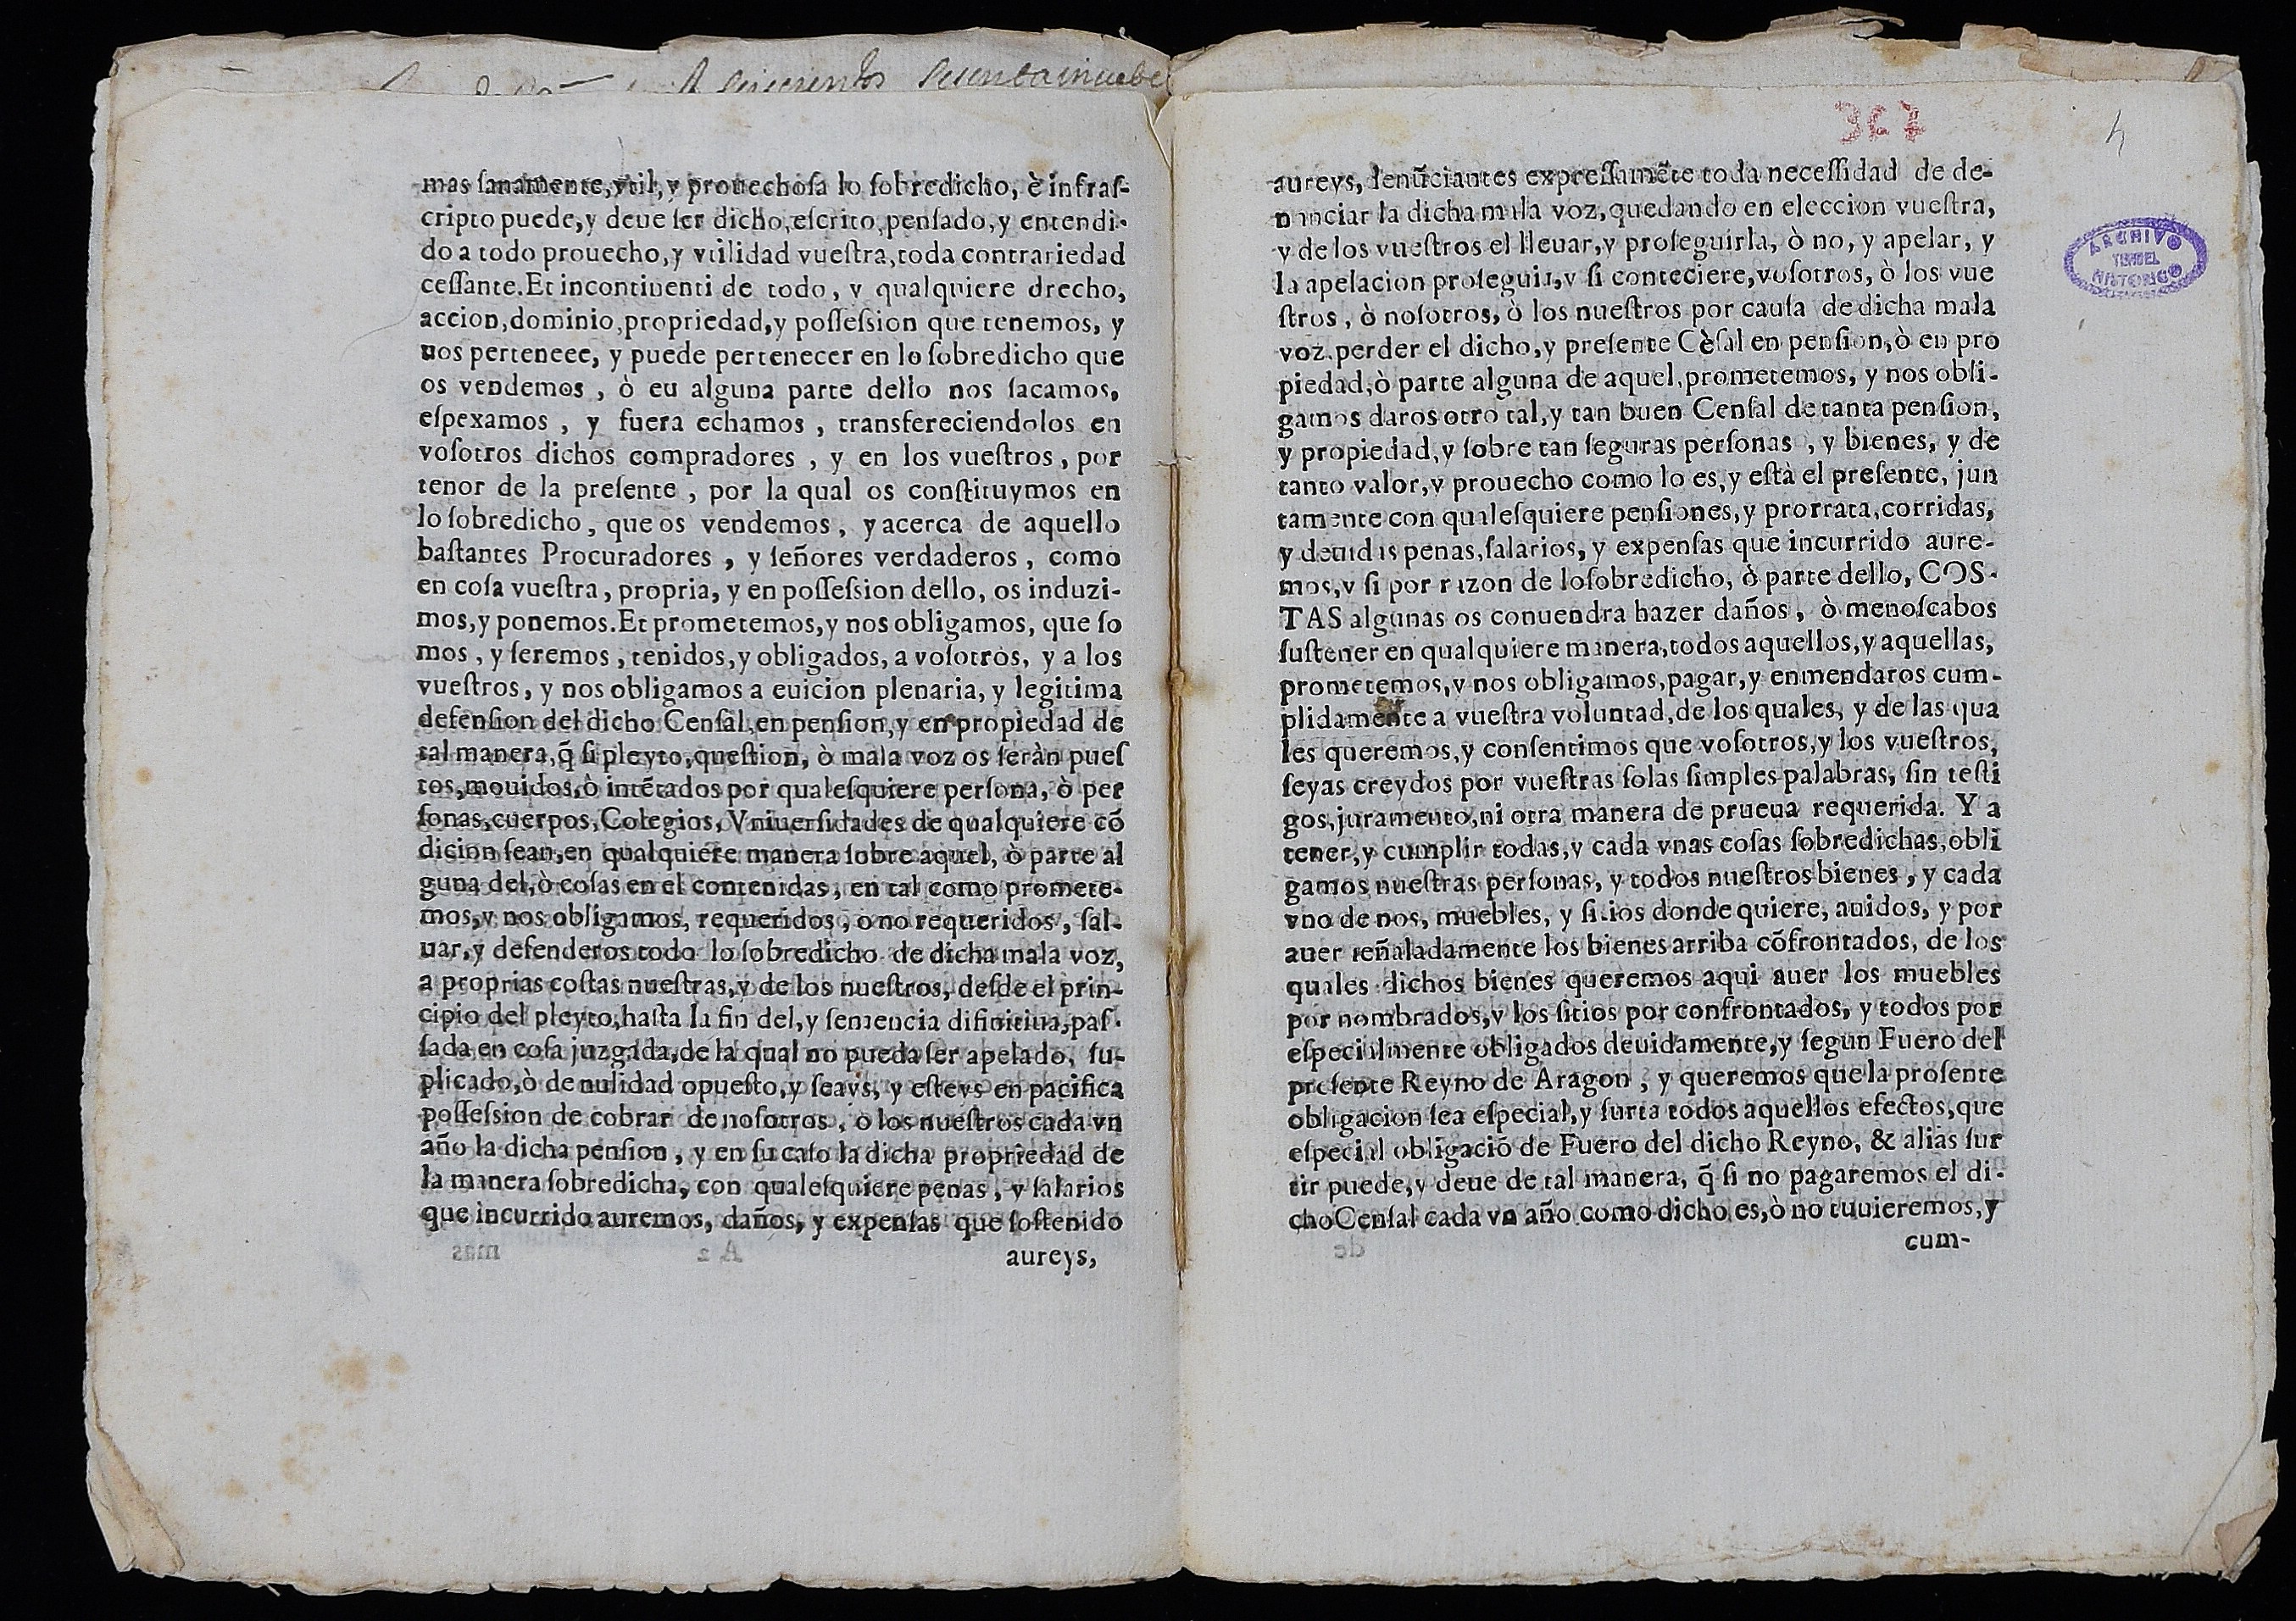 seiscientos sesentainuebe
mas sanamente, vtil, y prouechosa lo sobredicho, è infras-
cripto puede, y deue ser dicho, escrito, pensado, y entendi-
do a todo prouecho, y vtilidad vuestra, toda contrariedad
cessante. Et incontinenti de todo, y qualquiere drecho,
accion, dominio, propriedad, y possession que tenemos, y
nos perteneee, y puede pertenecer en lo sobredicho que
os vendemos, ò eu alguna parte dello nos sacamos,
espexamos, y fuera echamos, transfereciendolos en
vosotros dichos compradores, y en los vuestros, por
tenor de la presente, por la qual os constituymos en
lo sobredicho, que os vendemos, y acerca de aquello
bastantes Procuradores, y señores verdaderos, como
en cosa vuestra, propria, y en possession dello, os induzi-
mos, y ponemos. Et prometemos, y nos obligamos, que so
mos, y seremos, tenidos, y obligados, a vosotros, y a los
vuestros, y nos obligamos a euicion plenaria, y legitima
defension del dicho Censal, en pension, y en propiedad de
tal manera, q̃ si pleyto, question, ò mala voz os seràn pues
tos, mouidos, ò intẽtados por qualesquiere persona, ò per
sonas, cuerpos, Colegios, Vniuersidades de qualquiere cõ
dicion sean, en qualquiere manera sobre aquel, ò parte al
guna del, ò cosas en el contenidas, en tal como promete-
mos, y nos obligamos, requeridos, o no requeridos, sal-
uar, y defenderos todo lo sobredicho de dicha mala voz,
a proprias costas nuestras, y de los nuestros, desde el prin-
cipio del pleyto, hasta la fin del, y sentencia difinitiua, pas-
sada en cosa juzgada, de la qual no pueda ser apelado, su-
plicado, ò de nulidad opuesto, y seays, y esteys en pacifica
possession de cobrar de nosotros, o los nuestros cada vn
año la dicha pension, y en su caso la dicha propriedad de
la manera sobredicha, con qualesquiere penas, y salarios
que incurrido auremos, daños, y expensas que sostenido
aureys,
367
4
ARCHIVO
TERUEL
HISTORICO
aureys, renũciantes expressamẽte toda necessidad de de-
nunciar la dicha mala voz, quedando en eleccion vuestra,
y de los vuestros el lleuar, y proseguirla, ò no, y apelar, y
la apelacion proseguir, y si conteciere, vosotros, ò los vue
stros, ò nosotros, ò los nuestros por causa de dicha mala
voz. perder el dicho, y presente Cèsal en pension, ò en pro
piedad, ò parte alguna de aquel, prometemos, y nos obli-
gamos daros otro tal, y tan buen Censal de tanta pension,
y propiedad, y sobre tan seguras personas, y bienes, y de
tanto valor, y prouecho como lo es, y està el presente, jun
tamente con qualesquiere pensiones, y prorrata, corridas,
y deuidas penas, salarios, y expensas que incurrido aure-
mos, y si por razon de lo sobredicho, ò parte dello, COS-
TAS algunas os conuendra hazer daños, ò menoscabos
sustener en qualquiere manera, todos aquellos, y aquellas,
prometemos, y nos obligamos, pagar, y enmendaros cum-
plidamente a vuestra voluntad, de los quales, y de las qua
les queremos, y consentimos que vosotros, y los vuestros,
seyas creydos por vuestras solas simples palabras, sin testi
gos, juramento, ni otra manera de prueua requerida. Y a
tener, y cumplir todas, y cada vnas cosas sobredichas, obli
gamos nuestras personas, y todos nuestros bienes, y cada
vno de nos, muebles, y sitios donde quiere, auidos, y por
auer señaladamente los bienes arriba cõfrontados, de los
quales dichos bienes queremos aqui auer los muebles
por nombrados, y los sitios por confrontados, y todos por
especialmente obligados deuidamente, y segun Fuero del
presente Reyno de Aragon, y queremos que la prosente
obligacion sea especial, y surta todos aquellos efectos, que
especial obligaciõ de Fuero del dicho Reyno, & alias sur
tir puede, y deue de tal manera, q̃ si no pagaremos el di-
cho Censal cada vn año como dicho es, ò no tuuieremos, y
cum-